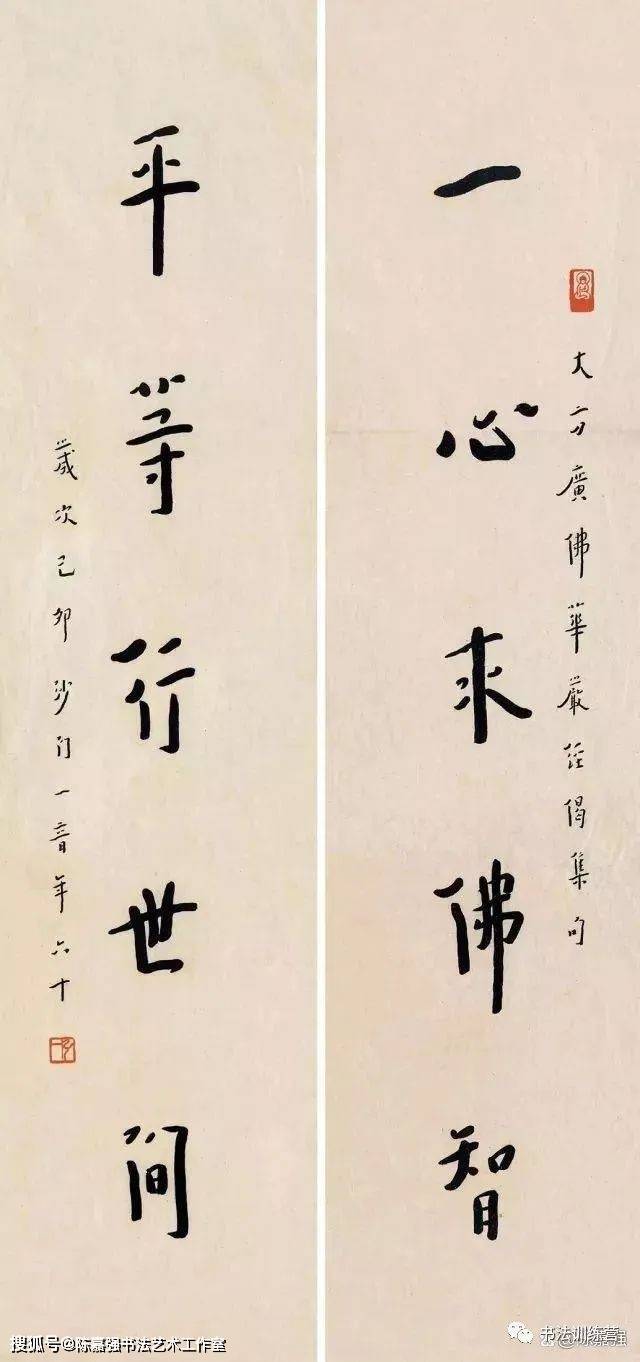 大方廣佛華嚴經偈集句
一心求佛智
平等行世間
歲次己卯沙門一音年六十
搜狐号@陈嘉强书法艺术工作室
书法训练营